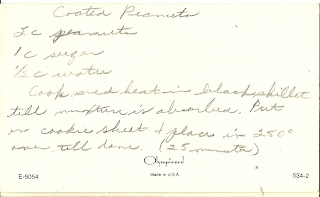 Coated Peanuts
2 c peanuts
1 c sugar
1/2 c water
Cook med heat in black skillet
till mixture is absorbed. Put
on cookie sheet & place in 250°
oven till done. (25 minutes)
Olympicard
E-5054 Made in U.S.A. 534-2